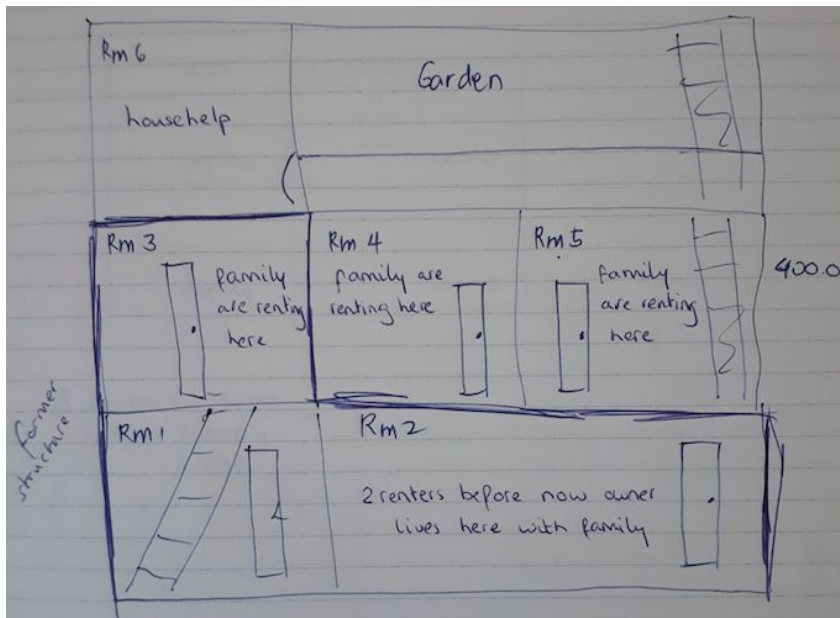 Rm 6
househelp
Garden
Rm 3
family
are renting
here
Rm 4
family are
renting here
Rm 5
family
are renting
here
400.0
former
structure
Rm 1
Rm 2
2 renters before now owner
lives here with family